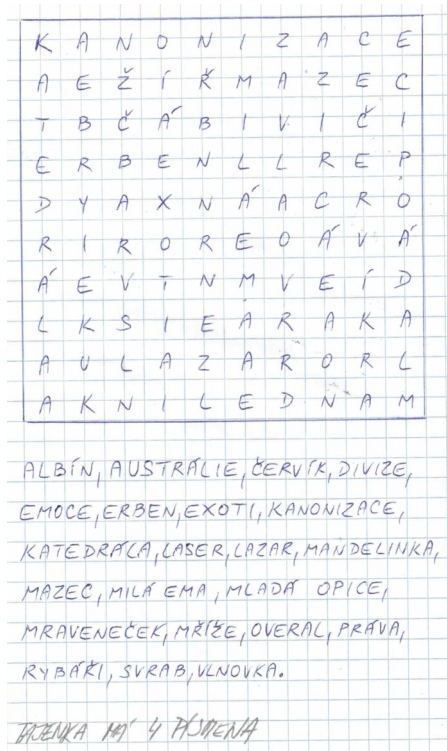 K A N O N I Z A C E
A E Ž Í Ř M A Z E C
T B Č Á B I V I Č I
E R B E N L L R E P
D Y A X N Á A C R O
R I R O R E O Á V Á
Á E V T N M V E Í D
L K S I E Á R A K A
A U L A Z A R O R L
A K N I L E D N A M
ALBÍN, AUSTRÁLIE, ČERVÍK, DIVIZE,
EMOCE, ERBEN, EXOTI, KANONIZACE,
KATEDRÁLA, LASER, LAZAR, MANDELINKA,
MAZEC, MILÁ EMA, MLADÁ OPICE,
MRAVENEČEK, MŘÍŽE, OVERAL, PRÁVA,
RYBÁŘI, SVRAB, VLNOVKA.
TAJENKA MÁ 4 PÍSMENA